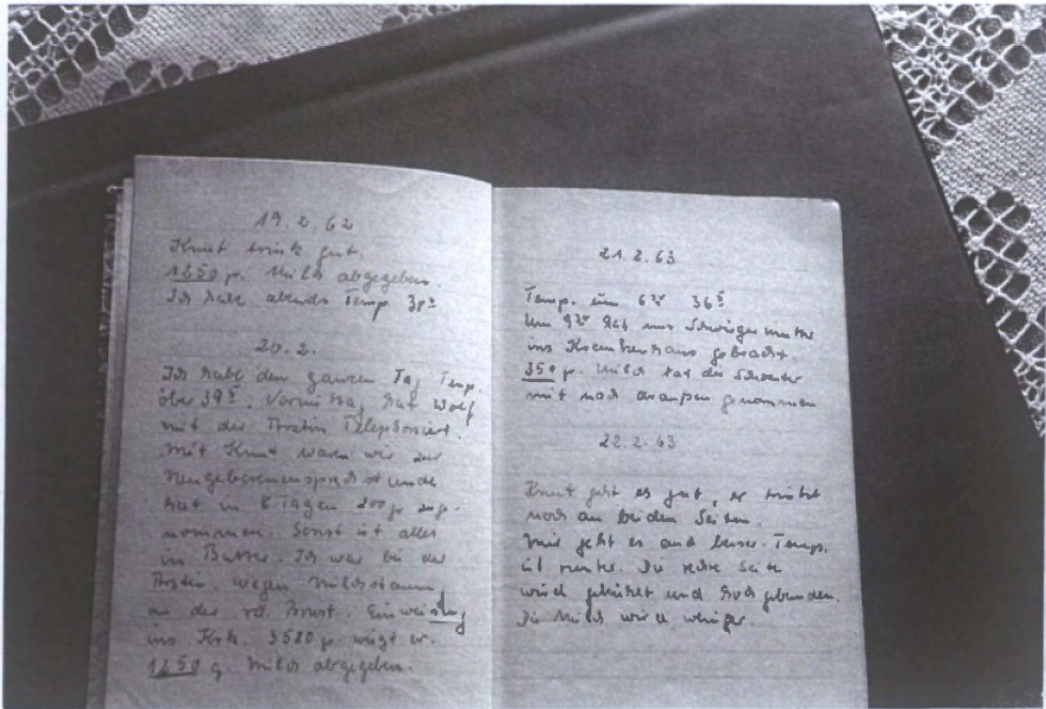 19.2.62
Knut trink gut.
1250 gr. Milch abgegeben.
Ich habe abends Temp. 38³
20.2.
Ich habe den ganzen Tag Temp.
über 39⁵. Vormittag hat Wolf
mit der Ärztin Telephoniert.
Mit Knut waren wir zur
Neugeborenensprechstunde
hat in 8 Tagen 200 gr. zuge-
nommen. Sonst ist alles
in Butter. Ich war bei der
Ärztin, wegen Milchstauung
an der re. Brust. Einweisung
ins Krkh. 3580 gr. wiegt er.
1250 g. Milch abgegeben.
21.2.63
Temp. um 6 36⁵
Um 9 hat uns Schwiegermutter
ins Krankenhaus gebracht.
350 gr. Milch hat die Schwester
mit nach draußen genommen
22.2.63
Knut geht es gut, er trinkt
noch an beiden Seiten.
Mir geht es auch besser. Temp.
ist runter. Die rechte Seite
wird gekühlt und hoch gebunden.
Die Milch wird weniger.